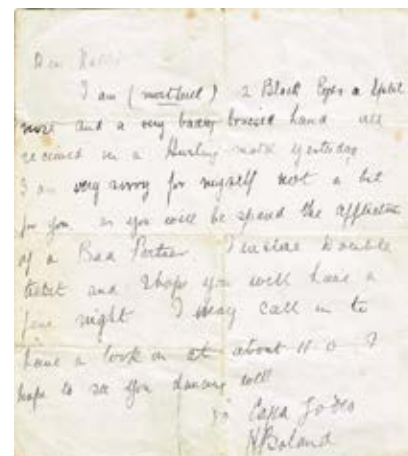 Dear
I am (                ) 2 Black Eyes a Split
nose and a very badly bruised hand all
received in a Hurling match yesterday
I am very sorry for myself not a bit
for you as you will be spared the affliction
of a Bad Partner I enclose Double
ticket and I hope you will have a
fine night I may call in to
have a look in at about 11 o
hope to see you dancing well
H Boland